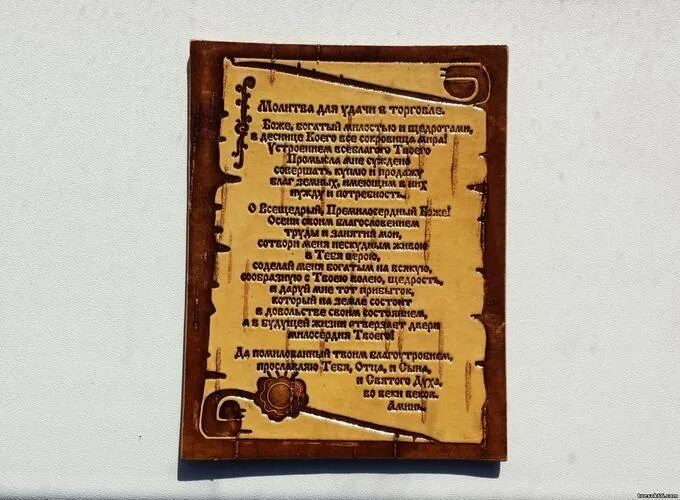 Молитва для удачи в торговле.
Боже, богатый милостью и щедротами,
в деснице Коего все сокровища мира!
Устроением всеблагого Твоего
Промысла мне суждено
совершать куплю и продажу
благ земных, имеющим в них
нужду и потребность.
О Всещедрый, Премилосердный Боже!
Осени своим благословением
труды и занятия мои,
сотвори меня нескудным живою
в Тебя верою,
соделай меня богатым на всякую,
сообразную с Твоею волею, щедрость,
и даруй мне тот прибыток,
который на земле состоит
в довольстве своим состоянием,
а в будущей жизни отверзает двери
милосердия Твоего!
Да помилованный твоим благоутробием,
прославляю Тебя, Отца, и Сына,
и Святого Духа,
во веки веков.
Аминь.